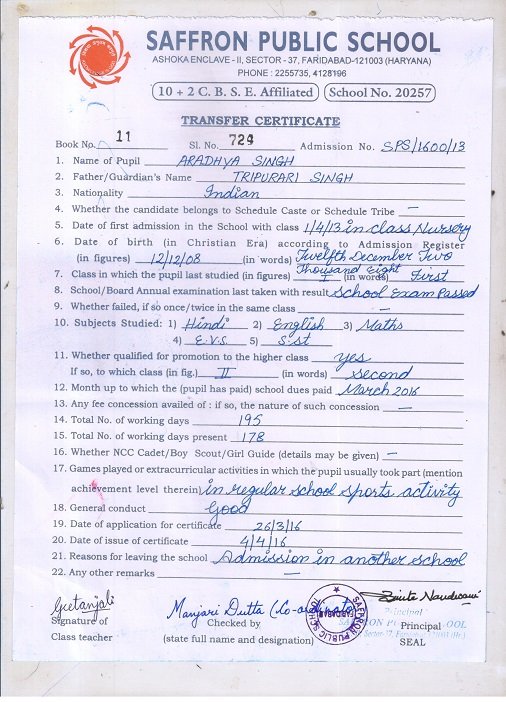 SAFFRON PUBLIC SCHOOL
ASHOKA ENCLAVE - II, SECTOR - 37, FARIDABAD-121003 (HARYANA)
PHONE : 2255735, 4128196
10 + 2 C. B. S. E. Affiliated School No. 20257
TRANSFER CERTIFICATE
Book No. 11 Sl. No. 724 Admission No. SPS/1600/13
1. Name of Pupil ARADHYA SINGH
2. Father/Guardian's Name TRIPURARI SINGH
3. Nationality Indian
4. Whether the candidate belongs to Schedule Caste or Schedule Tribe —
5. Date of first admission in the School with class 1/4/13 in class Nursery
6. Date of birth (in Christian Era) according to Admission Register
(in figures) 12/12/08 (in words) Twelfth December Two
Thousand Eight
7. Class in which the pupil last studied (in figures) I (in words) First
8. School/Board Annual examination last taken with result School Exam Passed
9. Whether failed, if so once/twice in the same class
10. Subjects Studied: 1) Hindi 2) English 3) Maths
4) E.V.S. 5) S.st
11. Whether qualified for promotion to the higher class yes
If so, to which class (in fig.) II (in words) second
12. Month up to which the (pupil has paid) school dues paid March 2016
13. Any fee concession availed of : if so, the nature of such concession —
14. Total No. of working days 195
15. Total No. of working days present 178
16. Whether NCC Cadet/Boy Scout/Girl Guide (details may be given) —
17. Games played or extracurricular activities in which the pupil usually took part (mention
achievement level therein) in regular school sports activity
18. General conduct Good
19. Date of application for certificate 26/3/16
20. Date of issue of certificate 4/4/16
21. Reasons for leaving the school Admission in another school
22. Any other remarks —
Geetanjali Manjari Dutta (Co-ordinator)
Signature of Checked by Principal
Class teacher (state full name and designation) SEAL
SAFFRON PUBLIC SCHOOL
FARIDABAD
Principal